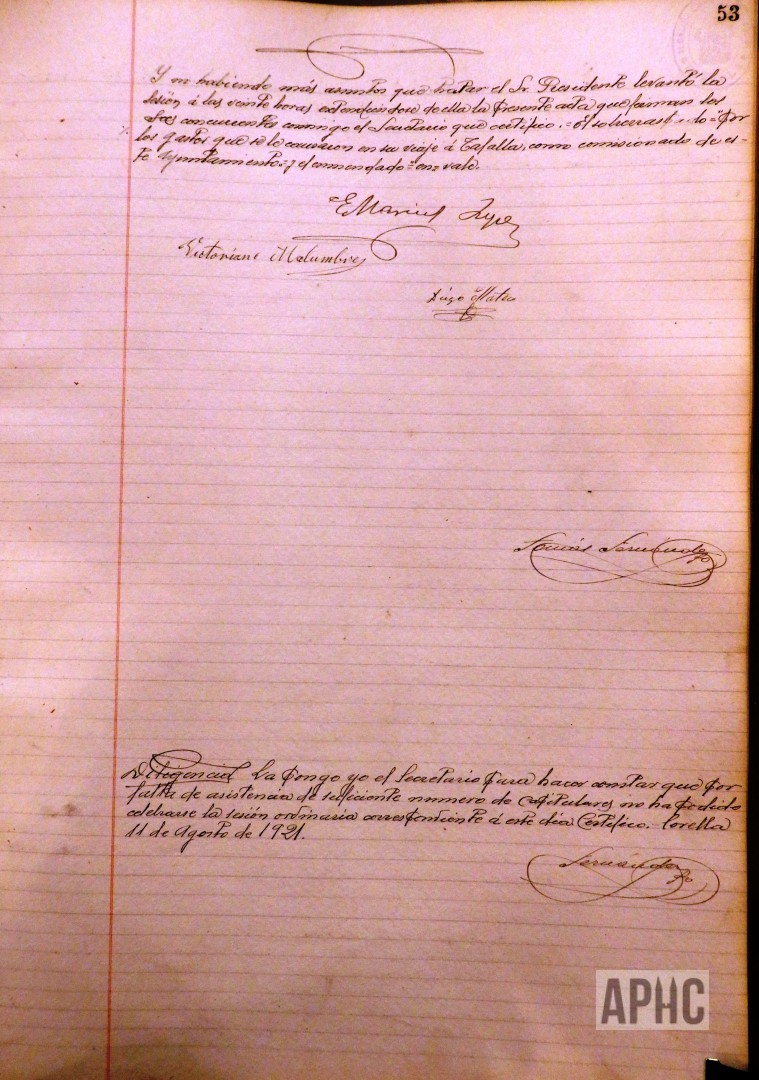 53
Y no habiendo más asuntos que tratar el Sr. Presidente levantó la
sesión á las veinte horas extendiéndose de ella la presente acta que firman los
Sres concurrentes conmigo el Secretario que certifico.= El sobrerraspado="Por
los gastos que se le causaron en su viaje á Tafalla, como comisionado de es-
te Ayuntamiento=y el enmendado="en=vale.
Victoriano Malumbres
Diego Mateo
Tomás Fernández
Diligencia La pongo yo el Secretario para hacer constar que por
falta de asistencia de suficiente numero de capitulares no ha podido
celebrarse la sesión ordinaria correspondiente á este día Certifico. Corella
11 de Agosto de 1921.
Fernández
APHC